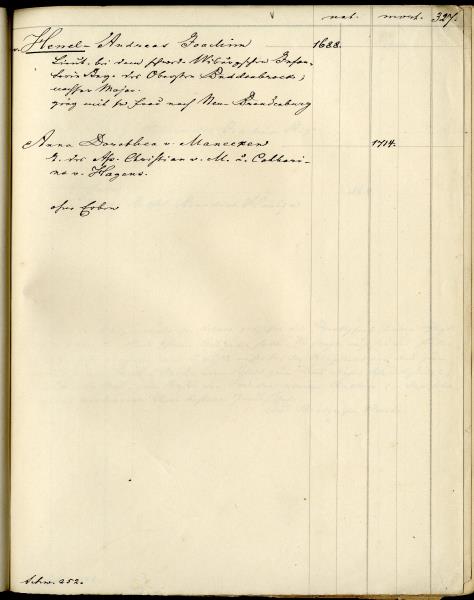 nat. mort. 327.
v. Henel - Andreas Joachim 1688.
Lieut. bei dem schwed. Wiburgschen Infan-
terie Regt. des Obersten Buddenbrock,
nachher Major.
ging mit sr. Frau nach Neu-Brandenburg
Anna Dorothea v. Manecken 1714.
T. des Ass. Christian v. M. u. Cathari-
na v. Hagens.
ohne Erben
Schw. 252.